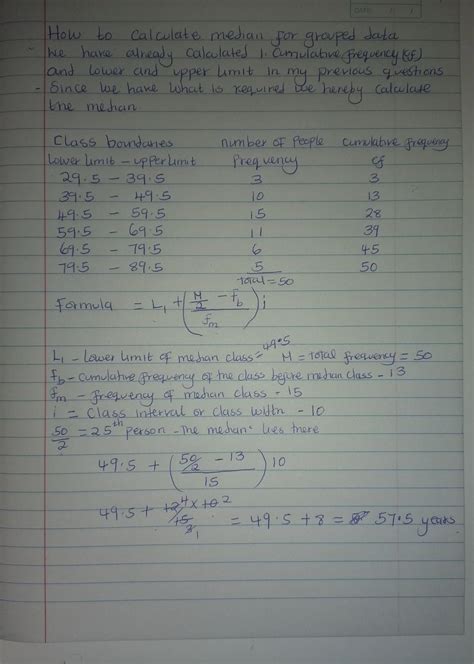 DATE
How to Calculate median for grouped data
We have already Calculated 1. Cumulative frequency (cf)
and lower and upper limit in my previous questions
- Since we have what is required we hereby calculate
the median
Class boundaries number of People cumulative frequency
lower limit - upper limit frequency cf
29.5 - 39.5 3 3
39.5 - 49.5 10 13
49.5 - 59.5 15 28
59.5 - 69.5 11 39
69.5 - 79.5 6 45
79.5 - 89.5 5 50
Total = 50
Formula = L1 + (M/2 - fb / fm) i
L1 - lower limit of median class = 49.5 M = Total frequency = 50
fb - Cumulative frequency of the class before median class - 13
fm - frequency of median class - 15
i = Class interval or class width - 10
50/2 = 25th person - The median lies there
49.5 + (50/2 - 13 / 15) 10
49.5 + 12 4 x 10 2 / 15 3 1 = 49.5 + 8 = 57.5 years